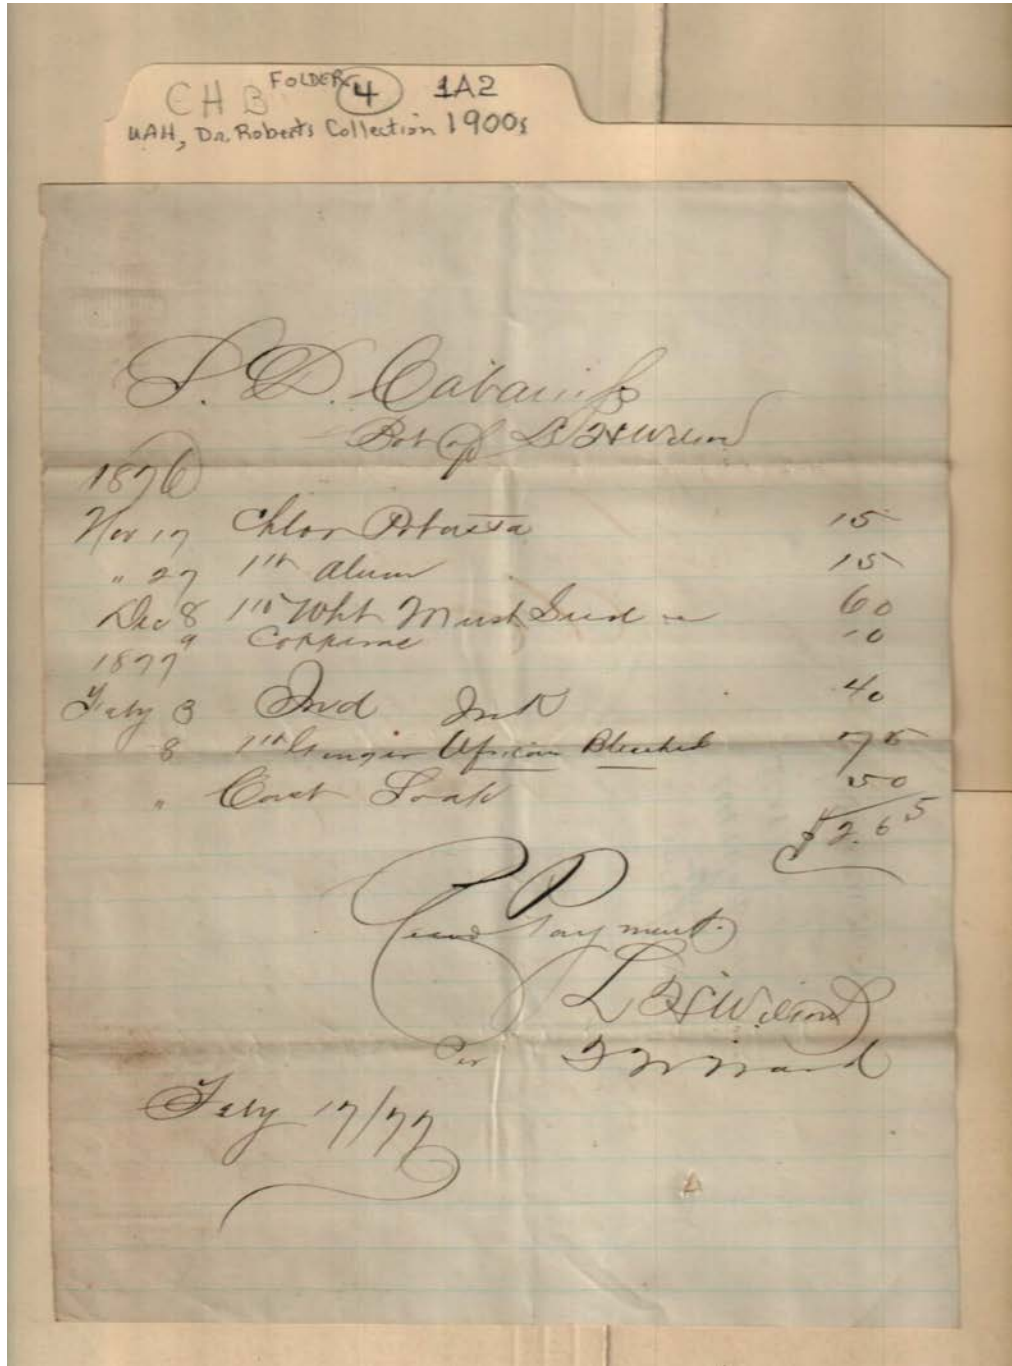 CHB FOLDER 4 1A2
UAH, Dr. Roberts Collection 1900s
S. D. Cabaniss
Bot of L H Wilson
1876
Nov 17 Chlor Potassa 15
" 27 1 lb Alum 15
Dec 8 1 lb Wht Must Seed 60
9 Copperas 10
1877
Feby 3 Ind Ink 40
8 1 lb Ginger African Bleached 75
" Cast Soap 50
$2.65
Payment.
L H Wilson
Per Ward
Feby 17/77